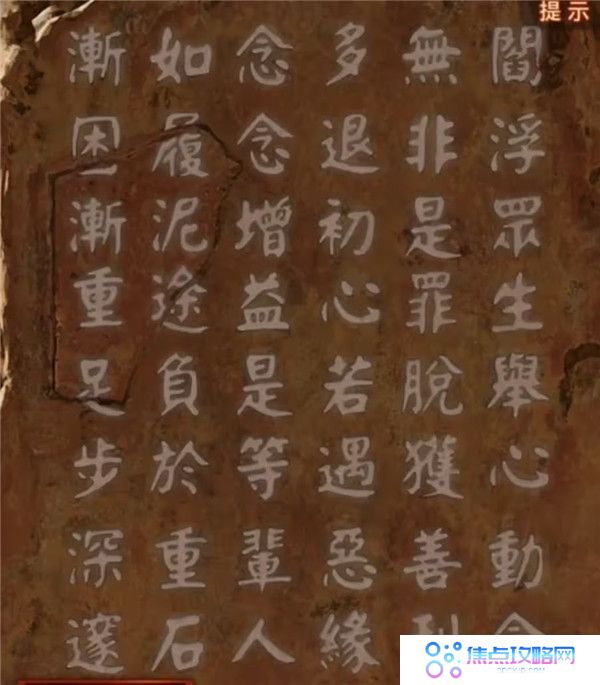 提示
閻浮眾生舉心動
無非是罪脫獲善
多退初心若遇惡緣
念念增益是等輩人
如履泥途負於重石
漸困漸重足步深邃
焦点攻略网